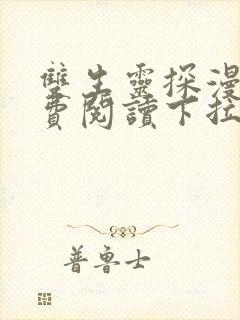 雙生靈探漫
費閱讀下拉
普魯士